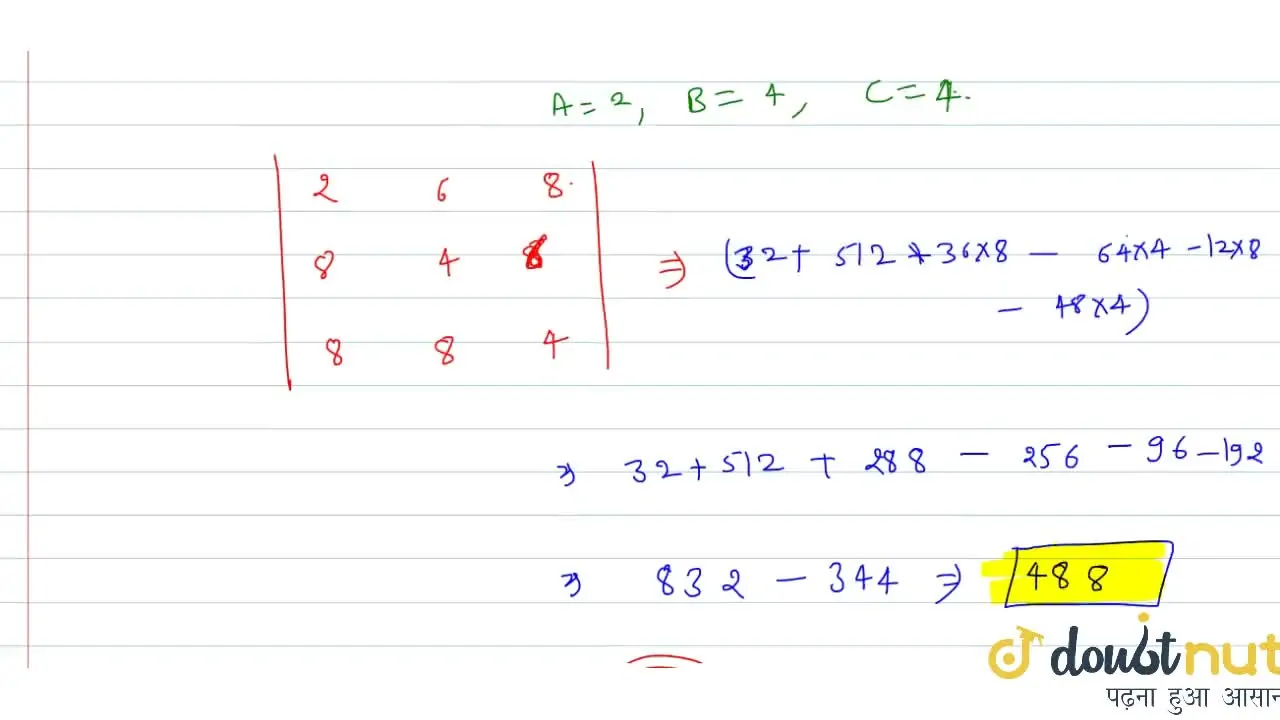 A = 2, B = 4, C = 4.
2 6 8
8 4
8 8 4
⇒ (32 + 512 + 36×8 − 64×4 − 12×8
− 48×4)
⇒ 32 + 512 + 288 − 256 − 96 − 192
⇒ 832 − 344 ⇒ 488
doubtnut
पढ़ना हुआ आसान